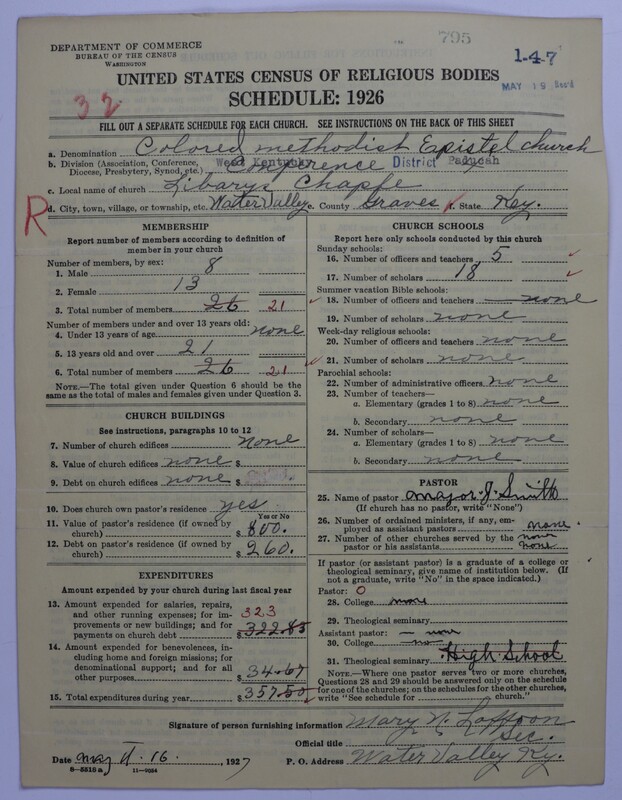 795
DEPARTMENT OF COMMERCE
BUREAU OF THE CENSUS
WASHINGTON
147
MAY 19 Rec'd
UNITED STATES CENSUS OF RELIGIOUS BODIES
SCHEDULE: 1926
32
FILL OUT A SEPARATE SCHEDULE FOR EACH CHURCH. SEE INSTRUCTIONS ON THE BACK OF THIS SHEET
a. Denomination Colored methodist Epistel church
b. Division (Association, Conference, Diocese, Presbytery, Synod, etc.) West Kentucky Conference District Paducah
c. Local name of church Libarys Chaple
R
d. City, town, village, or township, etc. Water Valley e. County Graves f. State Key.
MEMBERSHIP
Report number of members according to definition of
member in your church
Number of members, by sex:
1. Male 8
2. Female 13
3. Total number of members 26 21
Number of members under and over 13 years old:
4. Under 13 years of age none
5. 13 years old and over 21
6. Total number of members 26 21
NOTE.—The total given under Question 6 should be the
same as the total of males and females given under Question 3.
CHURCH BUILDINGS
See instructions, paragraphs 10 to 12
7. Number of church edifices none
8. Value of church edifices none $
9. Debt on church edifices none $
10. Does church own pastor's residence yes
Yes or No
11. Value of pastor's residence (if owned by
church) $ 800.
12. Debt on pastor's residence (if owned by
church) $ 260.
EXPENDITURES
Amount expended by your church during last fiscal year
13. Amount expended for salaries, repairs,
and other running expenses; for im-
provements or new buildings; and for
payments on church debt 323 $ 322.85
14. Amount expended for benevolences, in-
cluding home and foreign missions; for
denominational support; and for all
other purposes $ 34.67
15. Total expenditures during year $ 357.50
CHURCH SCHOOLS
Report here only schools conducted by this church
Sunday schools:
16. Number of officers and teachers 5
17. Number of scholars 18
Summer vacation Bible schools:
18. Number of officers and teachers none
19. Number of scholars none
Week-day religious schools:
20. Number of officers and teachers none
21. Number of scholars none
Parochial schools:
22. Number of administrative officers none
23. Number of teachers—
a. Elementary (grades 1 to 8) none
b. Secondary none
24. Number of scholars—
a. Elementary (grades 1 to 8) none
b. Secondary none
PASTOR
25. Name of pastor major J. Smith
(If church has no pastor, write "None")
26. Number of ordained ministers, if any, em-
ployed as assistant pastors none
27. Number of other churches served by the none
pastor or his assistants none
If pastor (or assistant pastor) is a graduate of a college or
theological seminary, give name of institution below. (If
not a graduate, write "No" in the space indicated.)
Pastor: O
28. College none
29. Theological seminary
Assistant pastor: — none
30. College no
31. Theological seminary High School
NOTE.—Where one pastor serves two or more churches,
Questions 28 and 29 should be answered only on the schedule
for one of the churches; on the schedules for the other churches,
write "See schedule for church."
Signature of person furnishing information Mary N. Laffoon
Official title Sec.
Date may 16. 1927 P. O. Address Water Valley Ky.
8-5518 a 11-9034